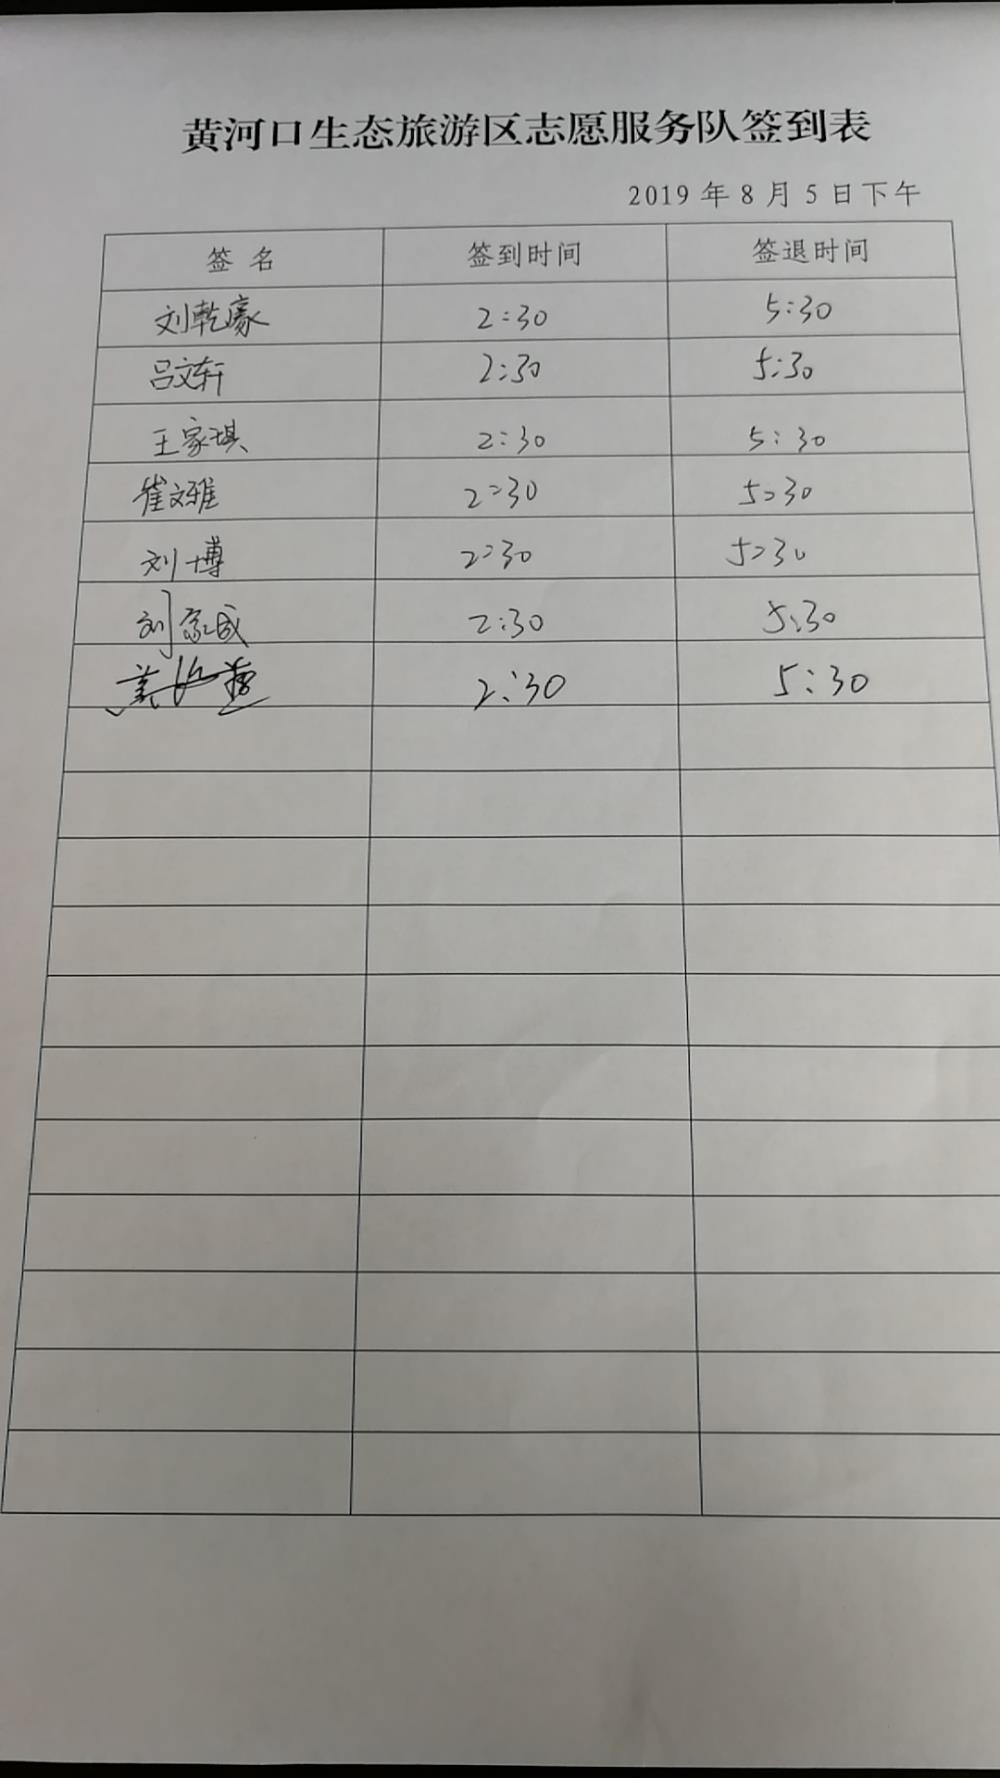 黄河口生态旅游区志愿服务队签到表
2019年8月5日下午
签名 签到时间 签退时间
刘乾豪 2:30 5:30
吕文轩 2:30 5:30
王家琪 2:30 5:30
崔文雅 2:30 5:30
刘博 2:30 5:30
刘家成 2:30 5:30
2:30 5:30